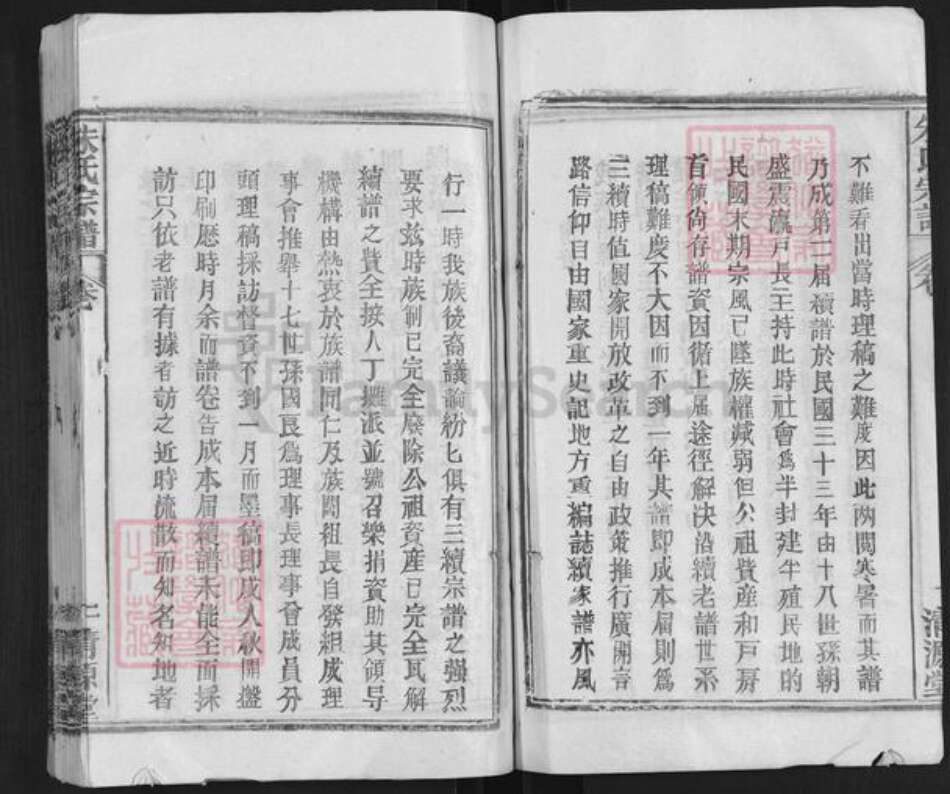 朱氏宗譜
清源堂
不難看出當時理稿之難度因此兩閱寒暑而其譜
乃成第二届續譜於民國三十三年由十八世孫朝
盛震瀛戸長主持此時社會為半封建半殖民地的
民國末期宗風已墜族權減弱但公祖賞産和戸房
首領尚存譜資因衛上届途徑解决沿續老譜世系
理稿難度不大因而不到一年其譜即成本届則為
三續時值國家開放改革之自由政策推行廣開言
路信仰自由國家重史記地方重編誌續家譜亦風
行一時我族後裔議論紛匕俱有三續宗譜之强烈
要求兹時族制已完全廢除公祖資産已完全瓦解
續譜之貲全按人丁攤派並號召樂捐資助其領导
機構由热衷於族譜同仁及族間祖長自發組成理
事會推舉十七世孫國良爲理事長理事曾成員分
頭理稿採訪督資不到一月而墨稿即成入秋開盤
印刷歷時月余而譜卷告成本届續譜未能全面採
訪只依老譜有據者訪之近時流散而知名知地者
朱氏宗譜
卷
清源堂
FamilySearch